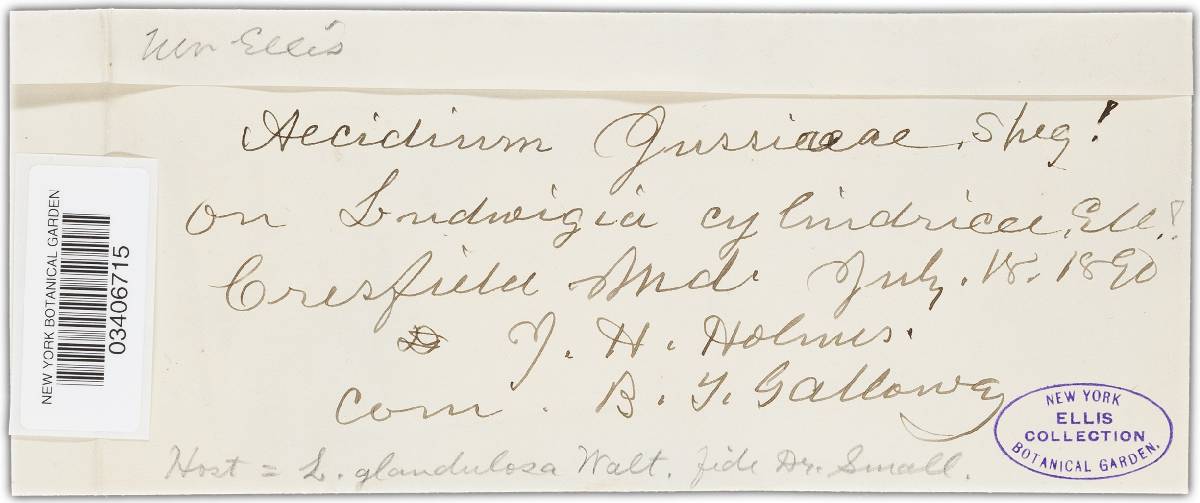 Ellis
Aecidium Jussiaeae, Speg!
on Ludwigia cylindricae, Ell!
Cresfield Md. July. 18. 1890
J. H. Holmes.
com. B. T. Galloway
Host = L. glandulosa Walt. fide Dr. Small.
NEW YORK BOTANICAL GARDEN
03406715
NEW YORK
ELLIS
COLLECTION
BOTANICAL GARDEN.